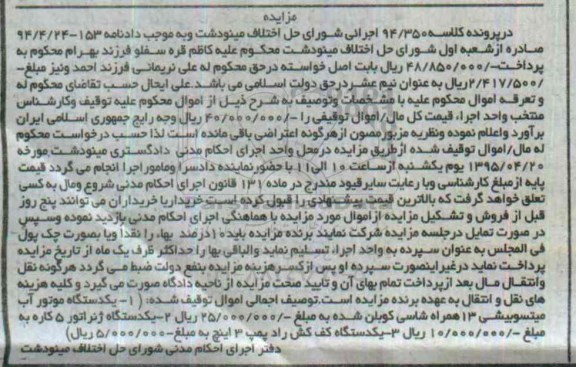 مزایده
درپرونده کلاسه ۹۴/۳۵۰ اجرائی شورای حل اختلاف مینودشت وبه موجب دادنامه ۱۵۳-۹۴/۴/۲۴
صادره ازشعبه اول شورای حل اختلاف مینودشت محکوم علیه کاظم قره سفلو فرزند بهرام محکوم به
پرداخت-/۴۸/۸۵۰/۰۰۰ ریال بابت اصل خواسته درحق محکوم له علی نریمانی فرزند احمد ونیز مبلغ-
/۲/۴۱۷/۵۰۰ریال به عنوان نیم عشردرحق دولت اسلامی می باشد.علی ایحال حسب تقاضای محکوم له
و تعرفه اموال محکوم علیه با مشخصات وتوصیف به شرح ذیل از اموال محکوم علیه توقیف وکارشناس
منتخب واحد اجراء قیمت کل مال/اموال توقیفی را -/۴۰/۰۰۰/۰۰۰ ریال وجه رایج جمهوری اسلامی ایران
برآورد واعلام نموده ونظریه مزبورمصون ازهرگونه اعتراضی باقی مانده است لذا حسب درخواست محکوم
له مال/اموال توقیف شده ازطریق مزایده درمحل واحد اجرای احکام مدنی دادگستری مینودشت مورخه
۱۳۹۵/۰۴/۲۰ یوم یکشنبه ازساعت ۱۰ الی۱۱ با حضورنماینده دادسرا وماموراجرا انجام می گردد قیمت
پایه ازمبلغ کارشناسی وبا رعایت سایرقیود مندرج در ماده ۱۳۱ قانون اجرای احکام مدنی شروع ومال به کسی
تعلق خواهد گرفت که بالاترین قیمت پیشنهادی را قبول کرده است خریداریا خریداران می توانند پنج روز
قبل از فروش و تشکیل مزایده ازاموال مورد مزایده با هماهنگی اجرای احکام مدنی بازدید نموده وسپس
در صورت تمایل درجلسه مزایده شرکت نمایند برنده مزایده بایده ۱ درصد بهاء را نقداً ویا بصورت چک پول
فی المجلس به عنوان سپرده به واحد اجراء تسلیم نماید والباقی بهارا حداکثر ظرف یک ماه از تاریخ مزایده
پرداخت نماید درغیراینصورت سپرده او پس ازکسرهزینه مزایده بنفع دولت ضبط می گردد هرگونه نقل
وانتقال مال بعد ازپرداخت تمام بهای آن و تایید صحت مزایده از ناحیه دادگاه صورت می گیرد و کلیه هزینه
های نقل و انتقال به عهده برنده مزایده است.توصیف اجمالی اموال توقیف شده: (۱- یکدستگاه موتور آب
میتسوبیشی ۱۳ همراه شاسی کوبلن شده به مبلغ -/۲۵/۰۰۰/۰۰۰ ریال ۲-یکدستگاه ژنراتور ۵ کاره به
مبلغ -/۱۰/۰۰۰/۰۰۰ ریال ۳-یکدستگاه کف کش راد پمپ ۳ اینچ به مبلغ-/۵/۰۰۰/۰۰۰ ریال)
دفتر اجرای احکام مدنی شورای حل اختلاف مینودشت